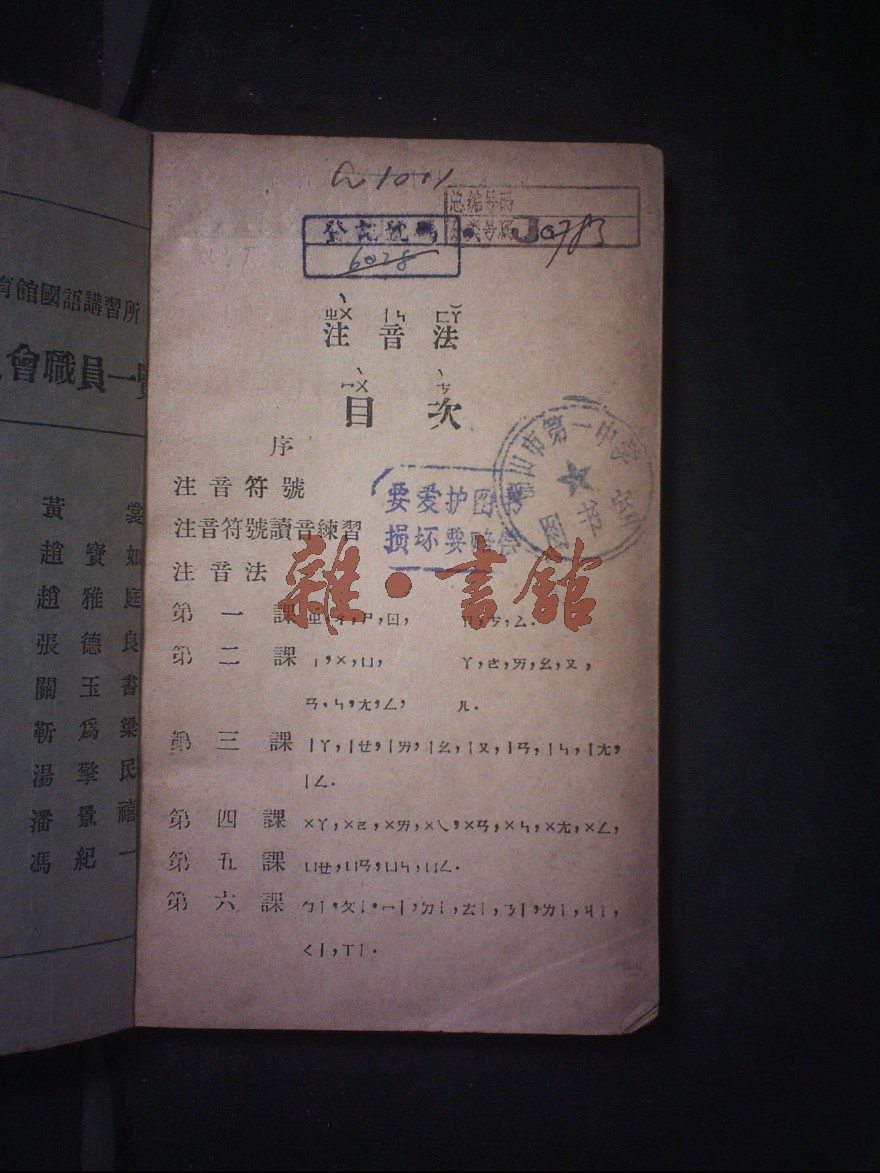 育館國語講習所
會職員一覽
黃 裳
趙寶如
趙雅庭
張德良
關玉書
靳爲梁
湯擎民
潘景禧
馮紀一
登記號碼
6028
总编号码
分类号碼
ㄓㄨˋ ㄧㄣ ㄈㄚˇ
注音法
ㄇㄨˋ ㄘˋ
目次
序
注音符號
注音符號讀音練習
注音法
第一課 ㄓ,ㄔ,ㄕ,ㄖ, ㄗ,ㄘ,ㄙ.
第二課 ㄧ,ㄨ,ㄩ, ㄚ,ㄜ,ㄞ,ㄠ,ㄡ,
ㄢ,ㄣ,ㄤ,ㄥ, ㄦ.
第三課 ㄧㄚ,ㄧㄝ,ㄧㄞ,ㄧㄠ,ㄧㄡ,ㄧㄢ,ㄧㄣ,ㄧㄤ,
ㄧㄥ.
第四課 ㄨㄚ,ㄨㄛ,ㄨㄞ,ㄨㄟ,ㄨㄢ,ㄨㄣ,ㄨㄤ,ㄨㄥ,
第五課 ㄩㄝ,ㄩㄢ,ㄩㄣ,ㄩㄥ.
第六課 ㄅㄧ,ㄆㄧ,ㄇㄧ,ㄉㄧ,ㄊㄧ,ㄋㄧ,ㄌㄧ,ㄐㄧ,
ㄑㄧ,ㄒㄧ.
要爱护图书
损坏要赔偿
山市第一中学
图书室
雜·書館